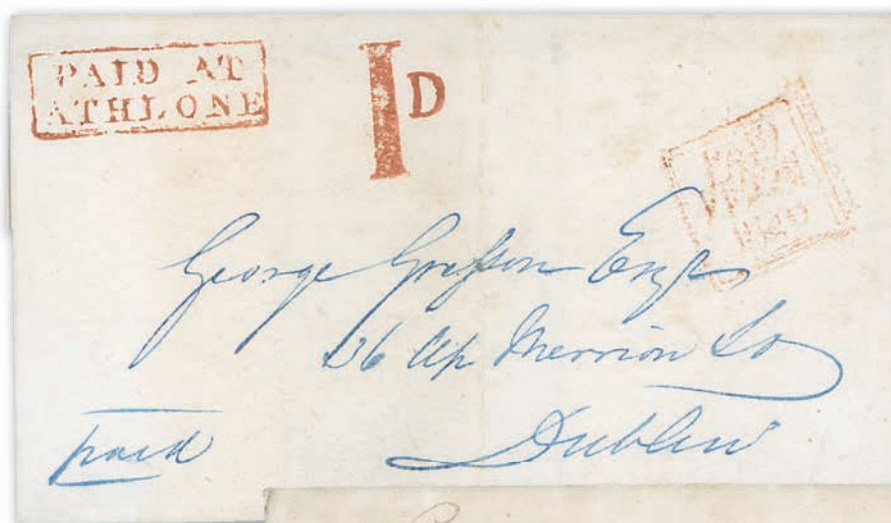 PAID AT
ATHLONE
1D
PAID
1840
George Esqr
36 Up Merrion Sq
Dublin
paid